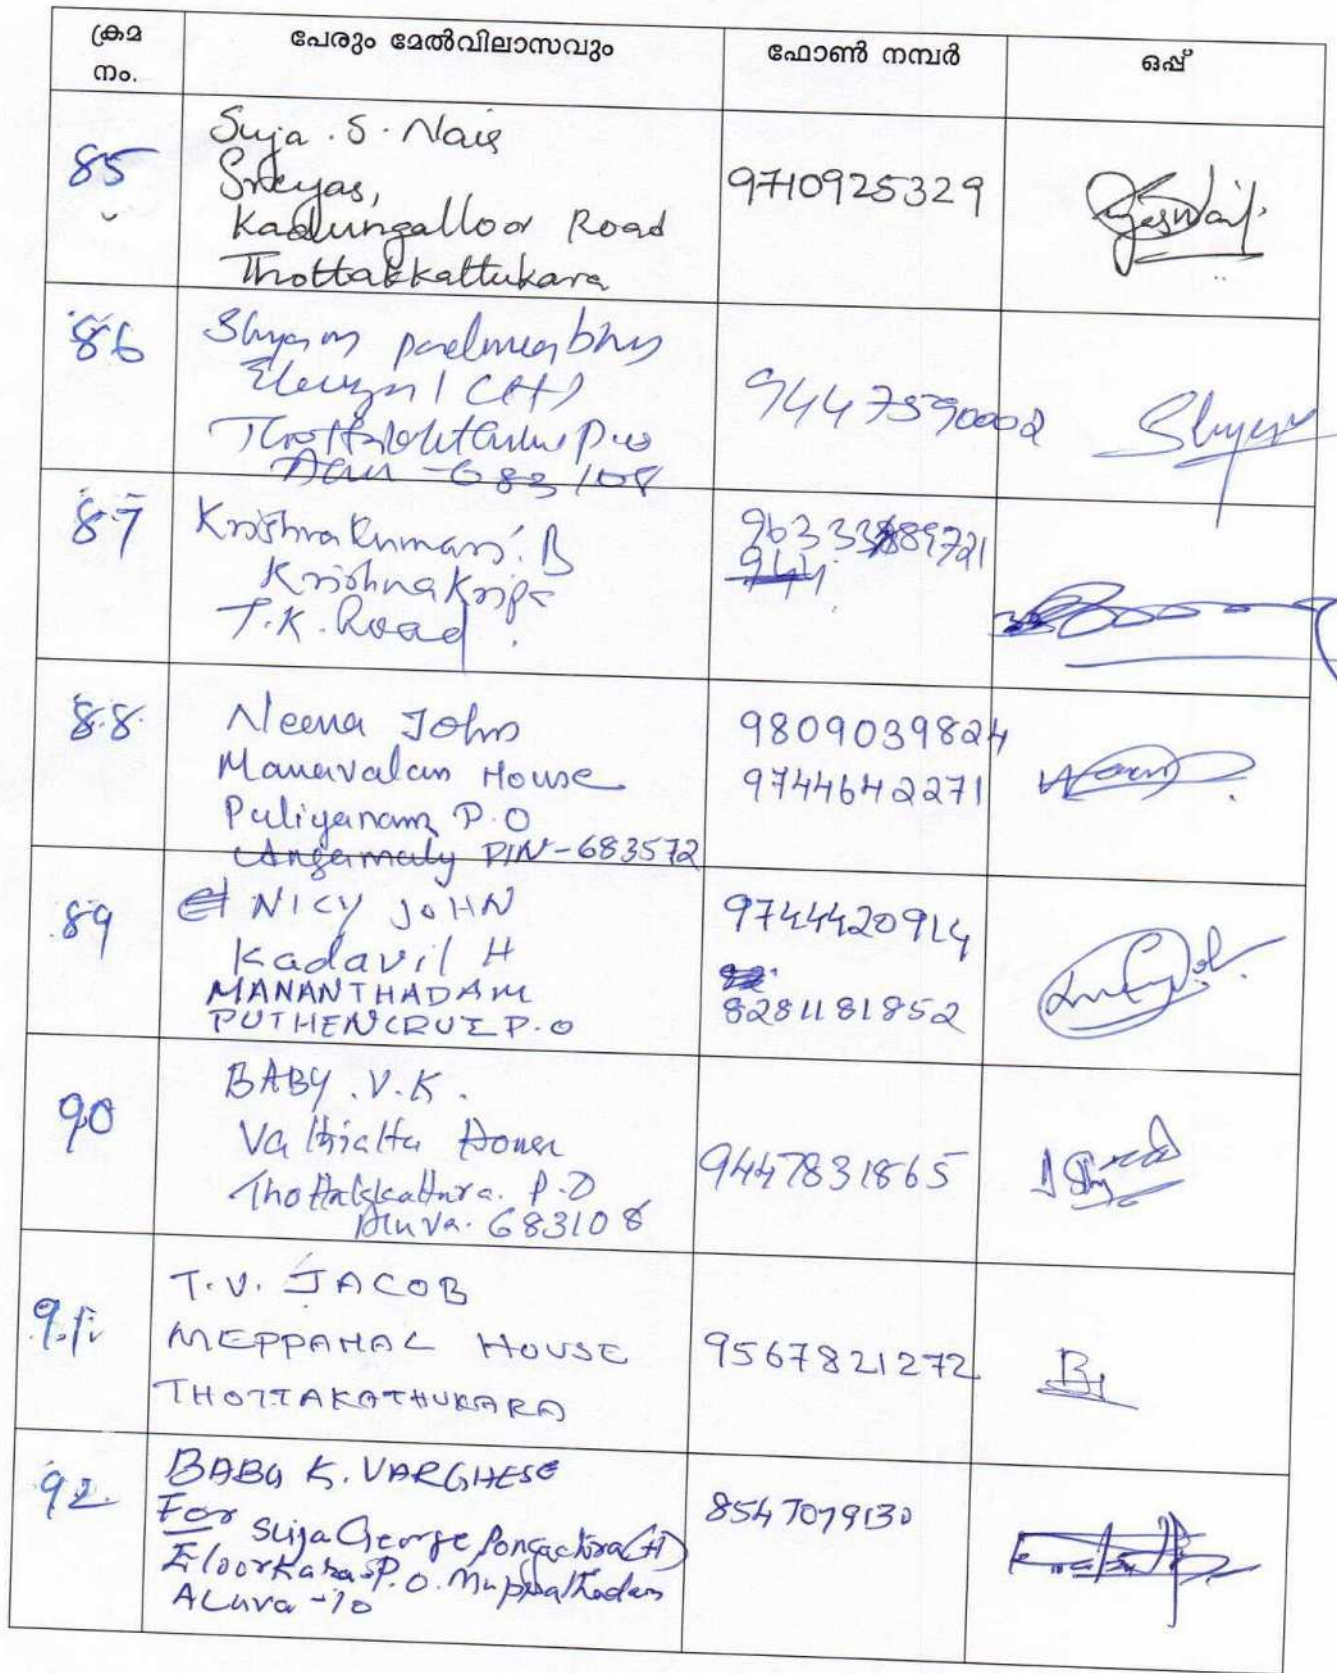 ക്രമ നം. പേരും മേൽവിലാസവും ഫോൺ നമ്പർ ഒപ്പ്
85
Suja . S. Nair
Sreyas,
Kadungalloor Road
Thottakkattukara
9710925329
86
Shyam padmanabhan
(H)
P.O
683108
9447590002
87
Krishnakumari. B
Krishnakripa
T.K. Road
88
Neena John
Manavalan House
Puliyanam P.O
Angamaly PIN-683572
9809039824
9744642271
89
NICY JOHN
Kadavil H
MANANTHADAM
PUTHENCRUZ P.O
9744420914
8281181852
90
BABY . V.K.
House
Thottakkattura. P.O
Aluva. 683108
9447831865
91
T.V. JACOB
MEPPAMAL HOUSE
THOTTAKATHUKARA
9567821272
92.
BABU K. VARGHESE
For Suja George Pongachira (H)
Eloorkara P.O. Muppathadam
ALuva -10
8547079130